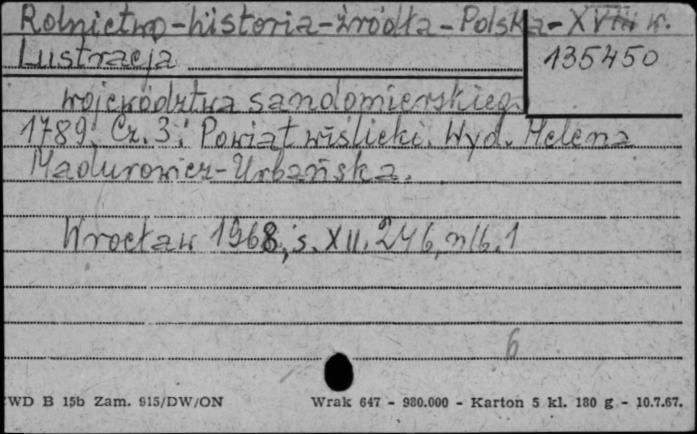 Rolnictwo-historia-źródła-Polska-XVIII w.
Lustracja
135450
województwa sandomierskiego
1789. Cz. 3: Powiat wiślicki. Wyd. Helena
Madurowicz-Urbańska.
Wrocław 1968, s. XII, 246, nlb. 1
6
WD B 15b Zam. 915/DW/ON Wrak 647 - 980.000 - Karton 5 kl. 180 g - 10.7.67.